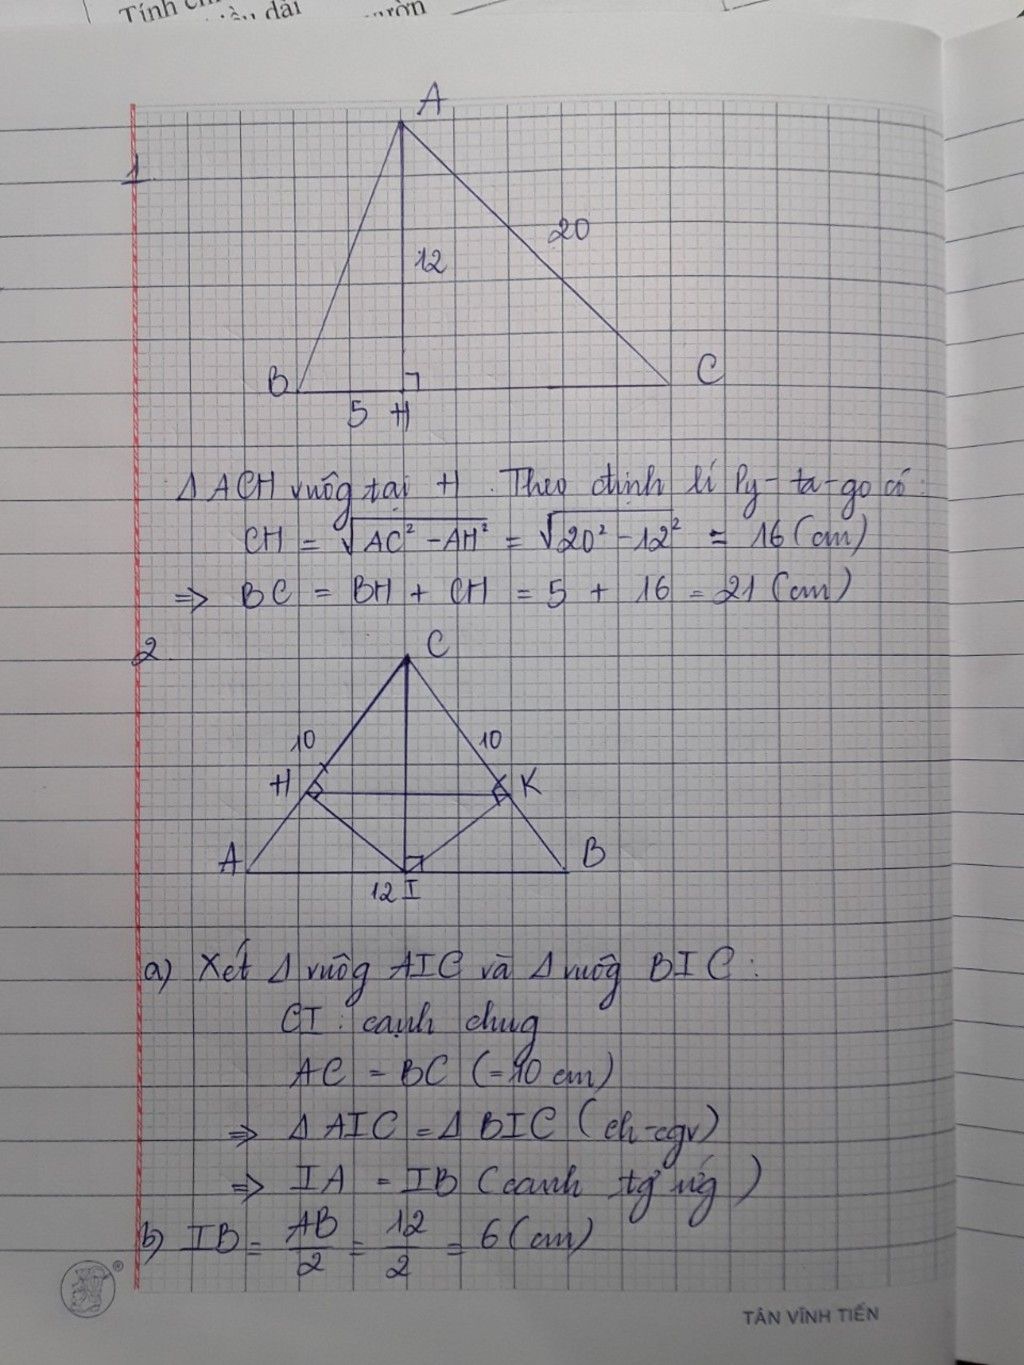 Tính ch
iều dài
ườn
A
1
20
12
B
C
5 H
Δ ACH vuôg tại H. Theo định lí Py-ta-go có:
CH = √AC² - AH² = √20² - 12² = 16 (cm)
⇒ BC = BH + CH = 5 + 16 = 21 (cm)
2
C
10 10
H K
A B
12 I
a) Xét Δ vuôg AIC và Δ vuôg BIC:
CI: cạnh chug
AC = BC (=10 cm)
⇒ Δ AIC = Δ BIC (ch-cgv)
⇒ IA = IB (cạnh tg ứg)
b) IB = AB/2 = 12/2 = 6 (cm)
®
TÂN VĨNH TIẾN